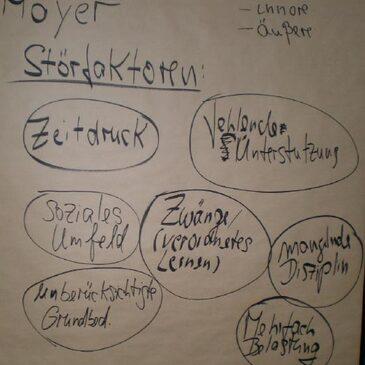 Moyer
- innere
- äußere
Störfaktoren:
Zeitdruck
fehlende
Unterstützung
soziales
Umfeld
Zwänge/
(verordnetes
Lernen)
mangelnde
Disziplin
unberücksichtigte
Grundbed.
Mehrfach
Belastung